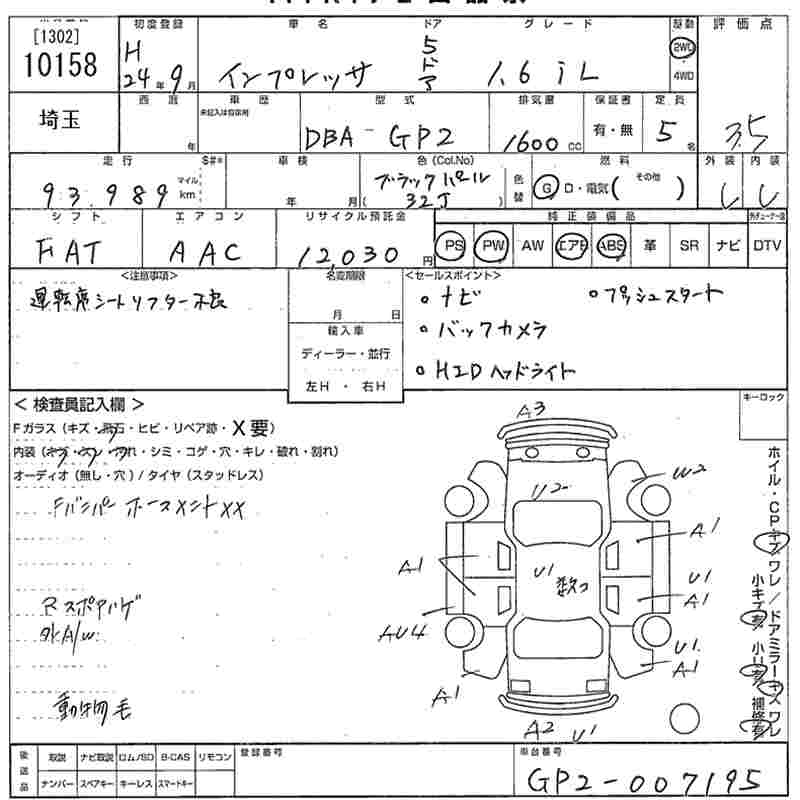 [1302]
10158
初度登録
H
24年9月
車名
インプレッサ
ドア
5ドア
グレード
1.6 i L
駆動
2WD
4WD
評価点
3.5
埼玉
西暦
年
車歴
未記入は自家用
型式
DBA-GP2
排気量
1600cc
保証書
有・無
定員
5名
走行
S#*
93,989
マイル
km
車検
年 月
色(Col.No)
ブラックパール
(32J
色替
燃料
G D・電気(その他 )
外装
内装
し し
シフト
FAT
エアコン
AAC
リサイクル預託金
12,030円
純正装備品
PS PW AW エアB ABS 革 SR ナビ
DTV
<注意事項>
運転席シートリフター不良
名変期限
月 日
輸入車
ディーラー・並行
左H・右H
<セールスポイント>
・ナビ ・プッシュスタート
・バックカメラ
・HIDヘッドライト
<検査員記入欄>
キーロック
Fガラス(キズ・飛石・ヒビ・リペア跡・X要)
内装(キズ・スレ・汚れ・シミ・コゲ・穴・キレ・破れ・割れ)
オーディオ(無し・穴)/タイヤ(スタッドレス)
Fバンパーホースメント××
Rスポアハゲ
外A/W
動物毛
A3
U2
W2
A1
A1
U1
数つ
U1
A1
AU4
U1
A1
A1
A2
U1
ホイル・CPキズ ワレ/ドアミラーキズ ワレ
小キズ有 小U有 補修有
後送品
取説 ナビ取説 ロム/SD B-CAS リモコン
ナンバー スペアキー キーレス スマートキー
登録番号
車台番号
GP2-007195